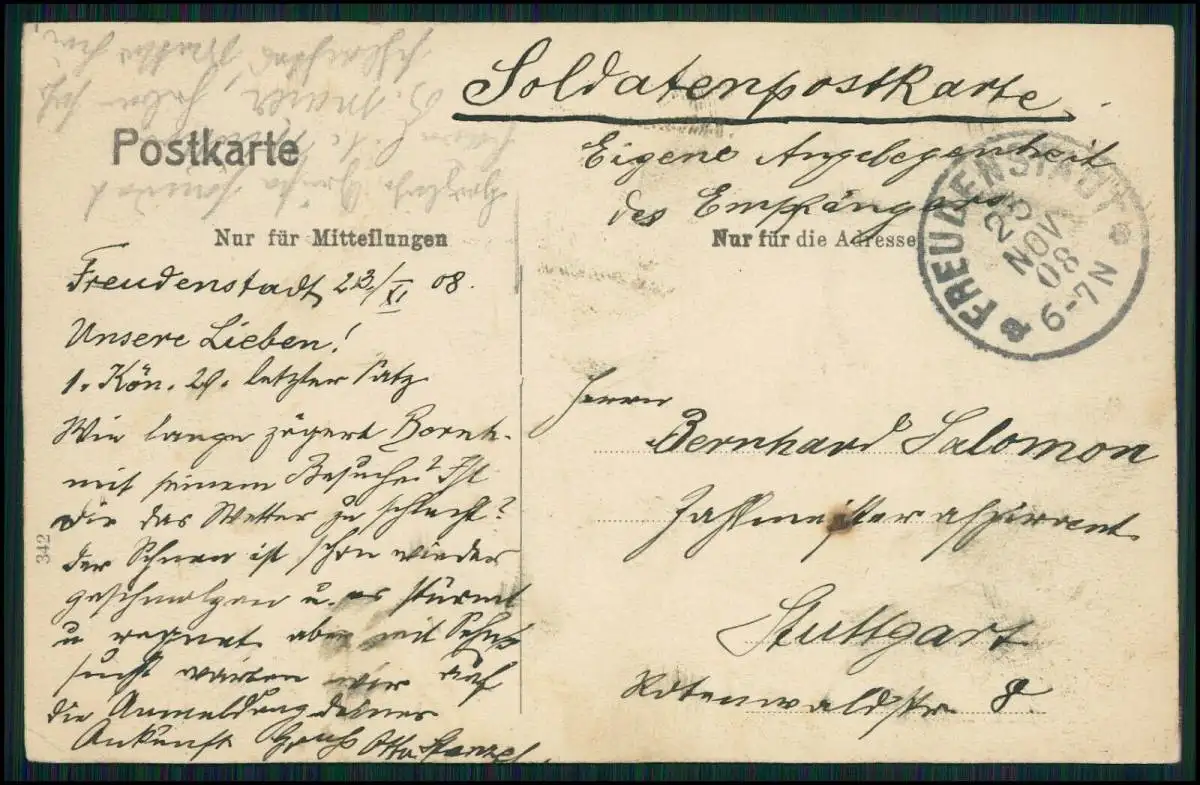 Soldatenpostkarte
Eigene Angelegenheit
des Empfängers
Postkarte
Nur für Mitteilungen
Nur für die Adresse
FREUDENSTADT
23
NOV
08
6-7N
Freudenstadt 23/XI 08.
Unsere Lieben!
1. Kön. 21. letzter Satz
Wie lange zögert Bernh.
mit seinem Besuche? Ist
Dir das Wetter zu schlecht?
der Schnee ist schon wieder
geschmolzen u. es stürmt
u regnet aber mit Sehn-
sucht warten wir auf
die Anmeldung deiner
Ankunft Gruß Otto
Herrn
Bernhard Salomon
Zahlmeisteraspirant
Stuttgart
Rotenwaldstr 8.
342